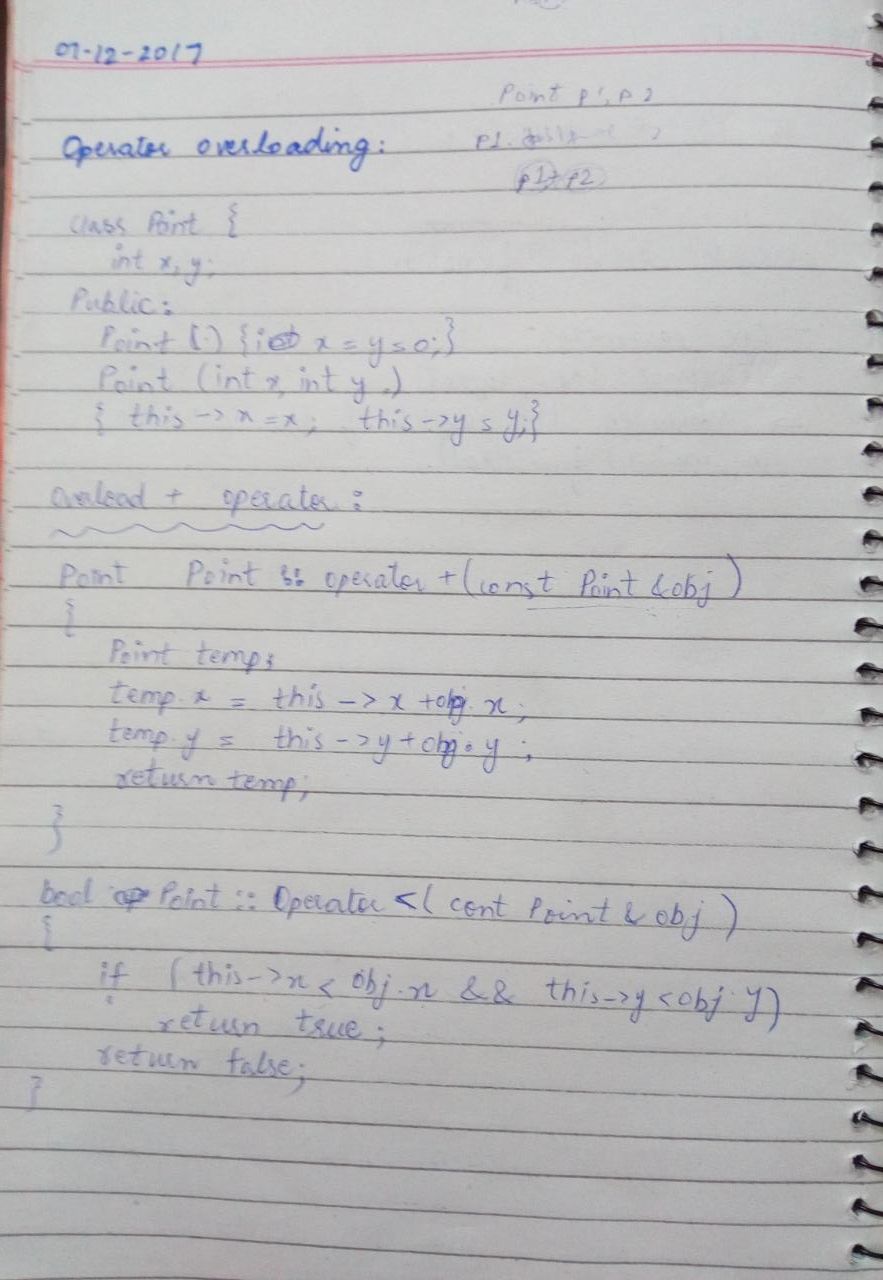 07-12-2017
Point p1, p2
Operator overloading:
p1.
p1+p2
Class Point {
int x, y;
Public:
Point () { x = y = 0;}
Point (int x, int y)
{ this -> x = x; this -> y = y;}
Overload + operator :
Point Point :: operator + (const Point &obj)
{
Point temp;
temp.x = this -> x + obj.x;
temp.y = this -> y + obj.y;
return temp;
}
bool Point :: Operator < ( cont Point & obj )
{
if (this->x < obj.x && this->y < obj.y)
return true;
return false;
}